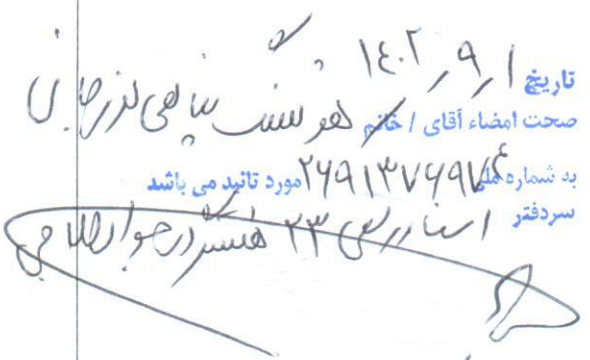 تاریخ ۱۴۰۲/۹/۱
صحت امضاء آقای / خانم هوشنگ پناهی
به شماره ملی ۲۶۹۱۳۷۶۹۷۴ مورد تائید می باشد
سردفتر اسناد رسمی ۲۳